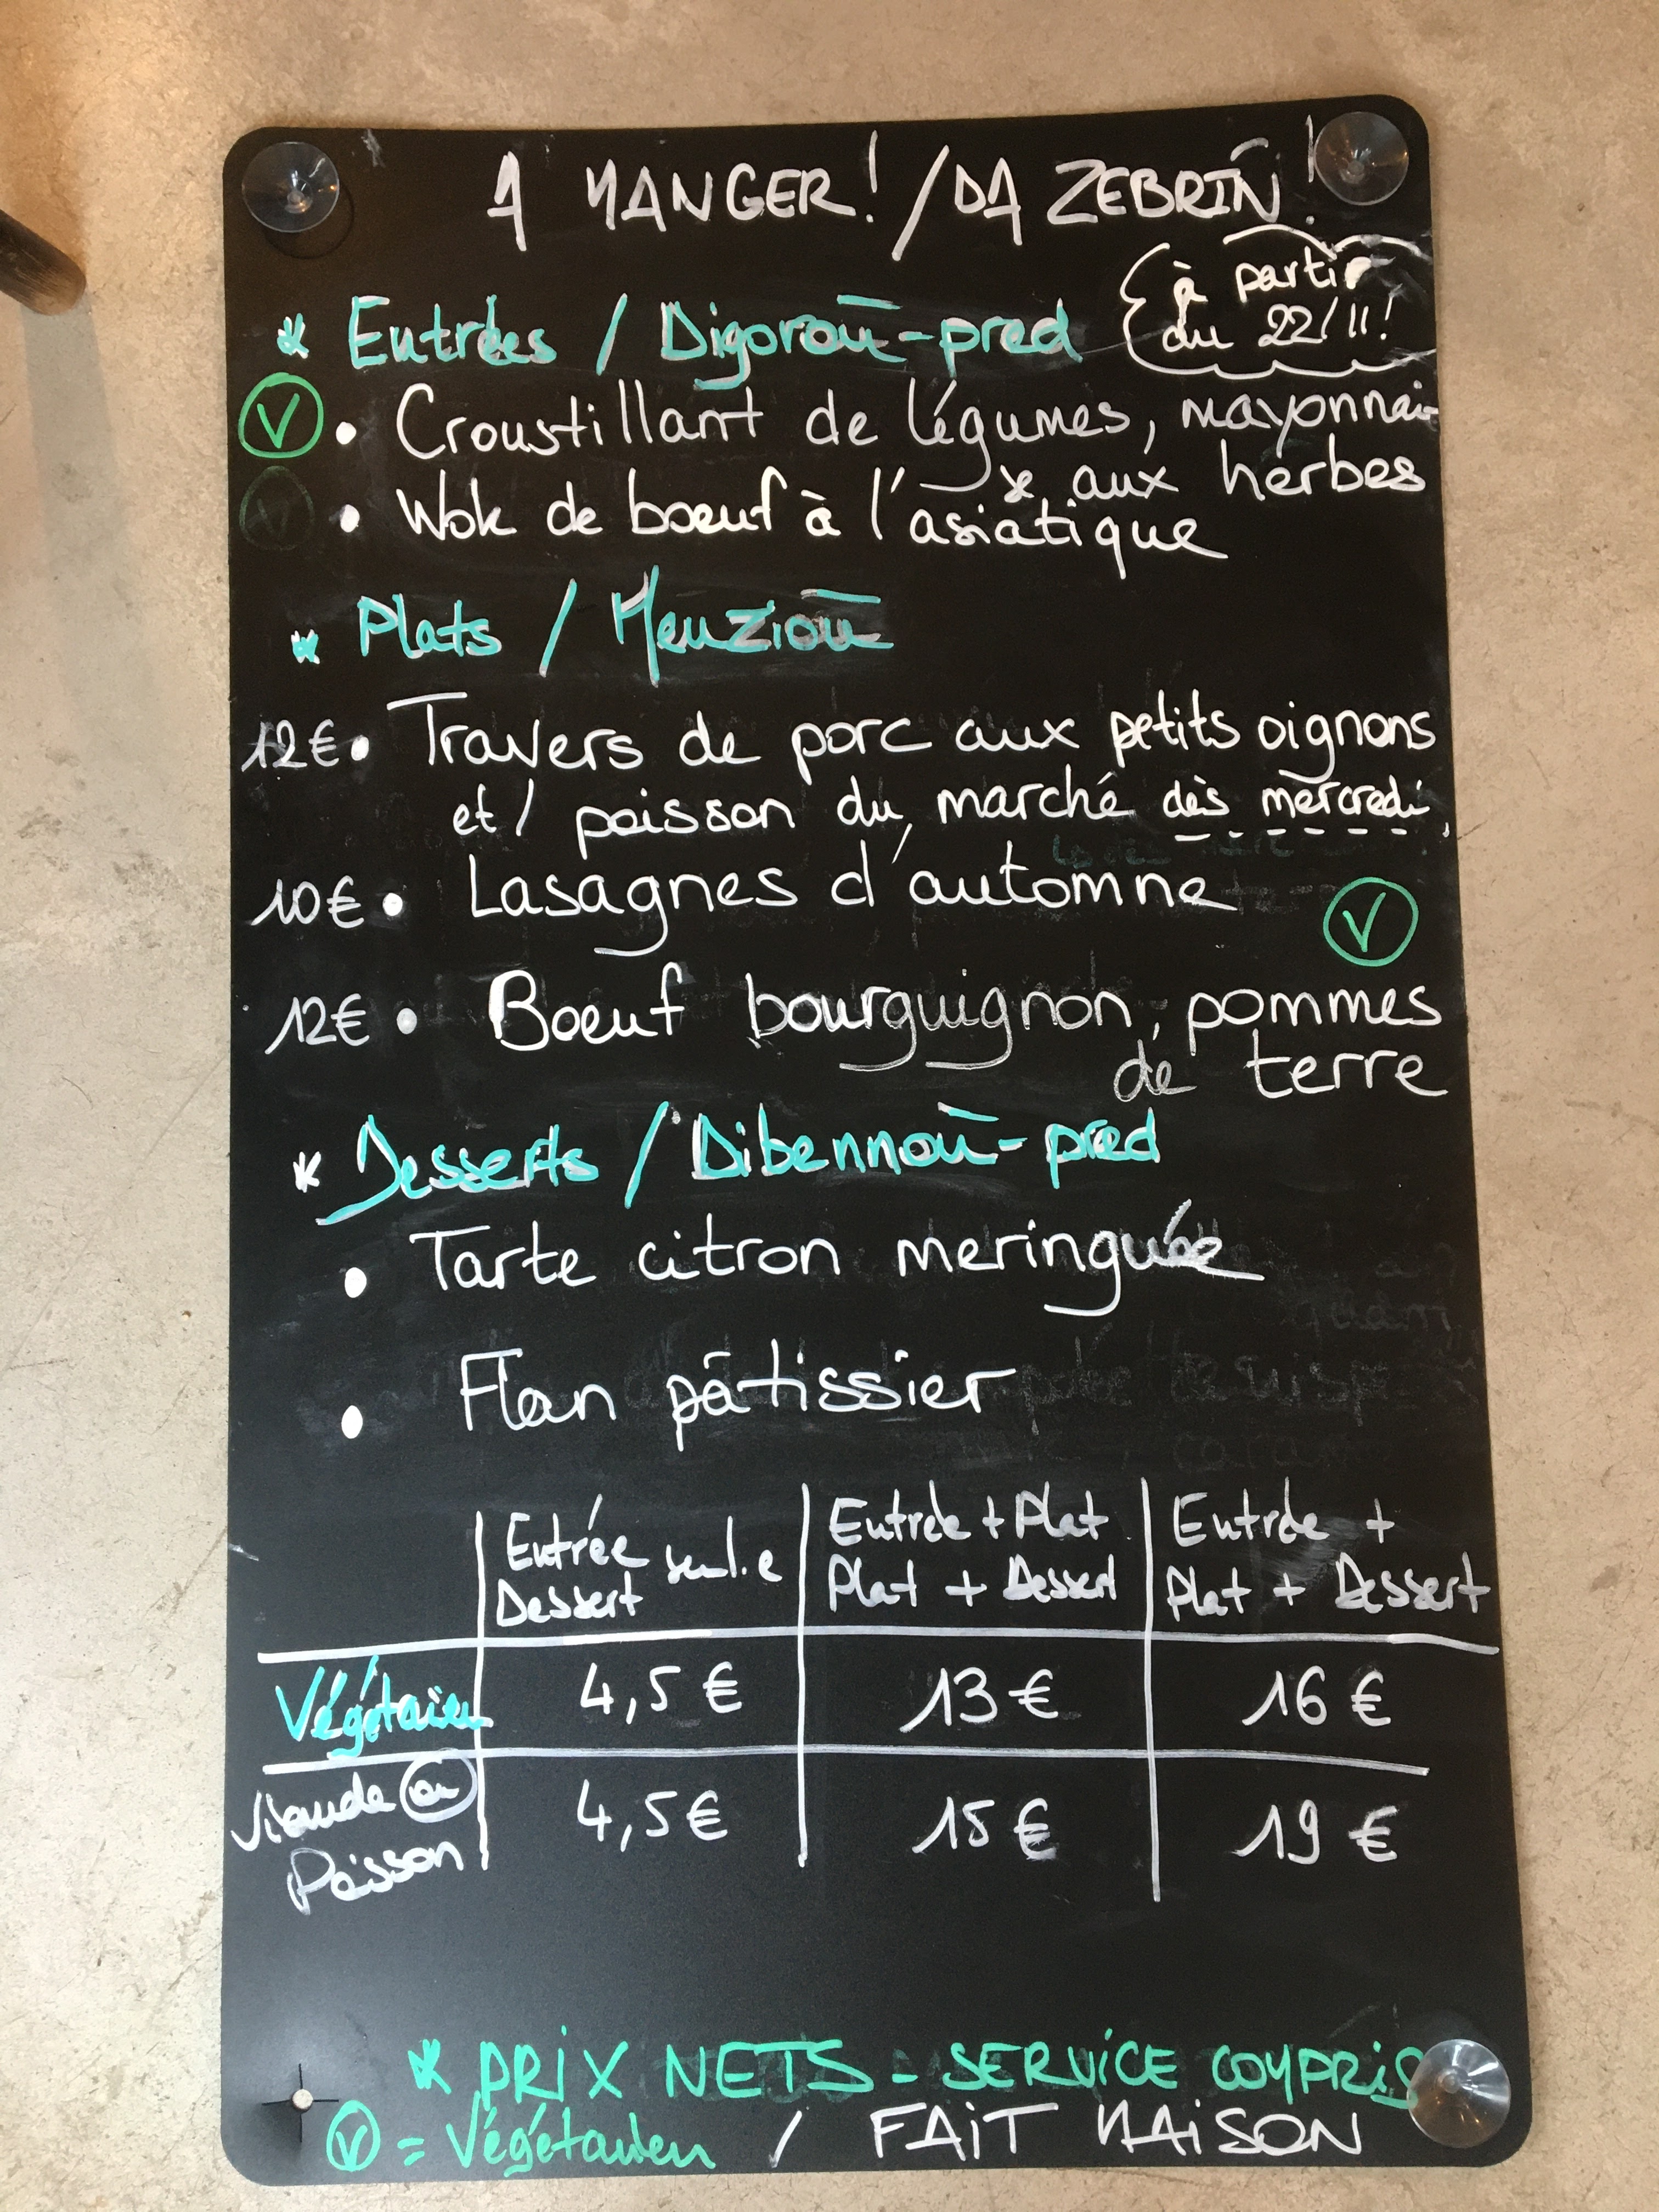 A MANGER! / DA ZEBRIÑ!
à partir
du 22/11!
* Entrées / Digoroù-pred
V • Croustillant de légumes, mayonnai-
se aux herbes
• Wok de boeuf à l'asiatique
* Plats / Meuzioù
12€ • Travers de porc aux petits oignons
et / poisson du marché dès mercredi
10€ • Lasagnes d'automne V
12€ • Boeuf bourguignon, pommes
de terre
* Desserts / Dibennoù-pred
• Tarte citron meringuée
• Flan pâtissier
Entrée seul.e Entrée + Plat Entrée +
Dessert Plat + Dessert Plat + Dessert
Végétarien 4,5€ 13€ 16€
Viande ou 4,5€ 15€ 19€
Poisson
* PRIX NETS - SERVICE COMPRIS
V = Végétarien / FAIT MAISON